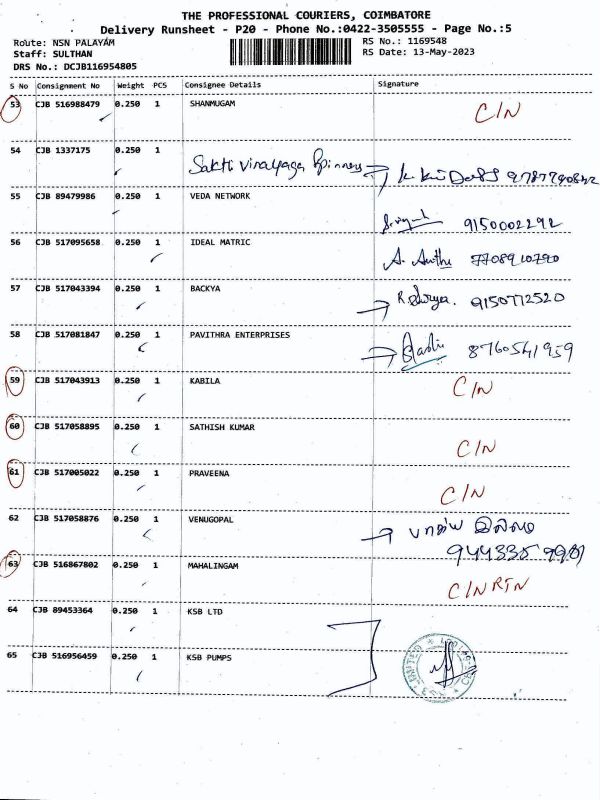 THE PROFESSIONAL COURIERS, COIMBATORE
Delivery Runsheet - P20 - Phone No.:0422-3505555 - Page No.:5
Route: NSN PALAYAM RS No.: 1169548
Staff: SULTHAN RS Date: 13-May-2023
DRS No.: DCJB116954805
S No Consignment No Weight PCS Consignee Details Signature
53 CJB 516988479 0.250 1 SHANMUGAM C/N
54 CJB 1337175 0.250 1 Sakthi Vinayaga Spinners
55 CJB 89479986 0.250 1 VEDA NETWORK 9150002292
56 CJB 517095658 0.250 1 IDEAL MATRIC A. 7708910790
57 CJB 517043394 0.250 1 BACKYA 9150772520
58 CJB 517081847 0.250 1 PAVITHRA ENTERPRISES 8760541959
59 CJB 517043913 0.250 1 KABILA C/N
60 CJB 517058895 0.250 1 SATHISH KUMAR C/N
61 CJB 517005022 0.250 1 PRAVEENA C/N
62 CJB 517058876 0.250 1 VENUGOPAL
63 CJB 516867802 0.250 1 MAHALINGAM C/N RTN
64 CJB 89453364 0.250 1 KSB LTD
65 CJB 516956459 0.250 1 KSB PUMPS